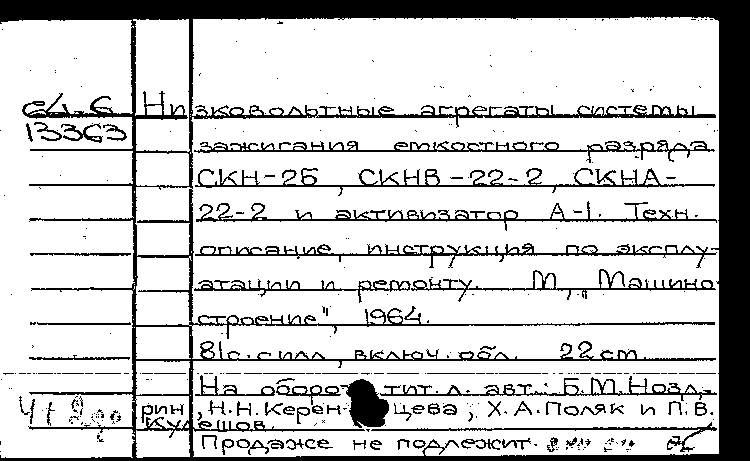 64-6 Низковольтные агрегаты системы
13363 зажигания емкостного разряда
СКН-2Б, СКНВ-22-2, СКНА-
22-2 и активизатор А-I. Техн.
описание, инструкция по эксплу-
атации и ремонту. М., "Машино-
строение", 1964.
81с. с илл., включ. обл. 22 cm.
На оборот тит. л. авт.: Б.М. Нозд-
рин, Н.Н. Керенцева, Х.А. Поляк и П.В.
Кулешов.
Продаже не подлежит.